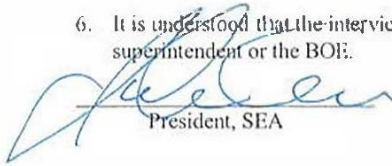 6. It is understood that the intervie
superintendent or the BOE.
President, SEA